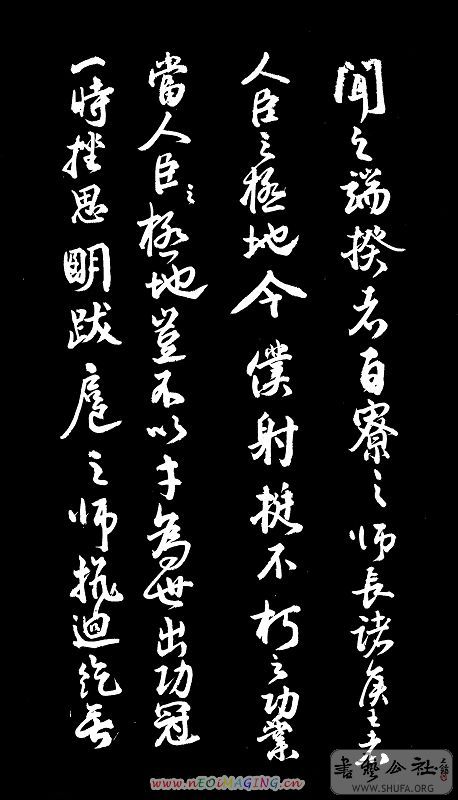 聞之端揆者百寮之師長諸侯王者
人臣之極地今僕射挺不朽之功業
當人臣之極地豈不以才為世出功冠
一時挫思明跋扈之師抗迴紇無
書藝公社
WWW.SHUFA.ORG
www.nEOiMAGiNG.cn